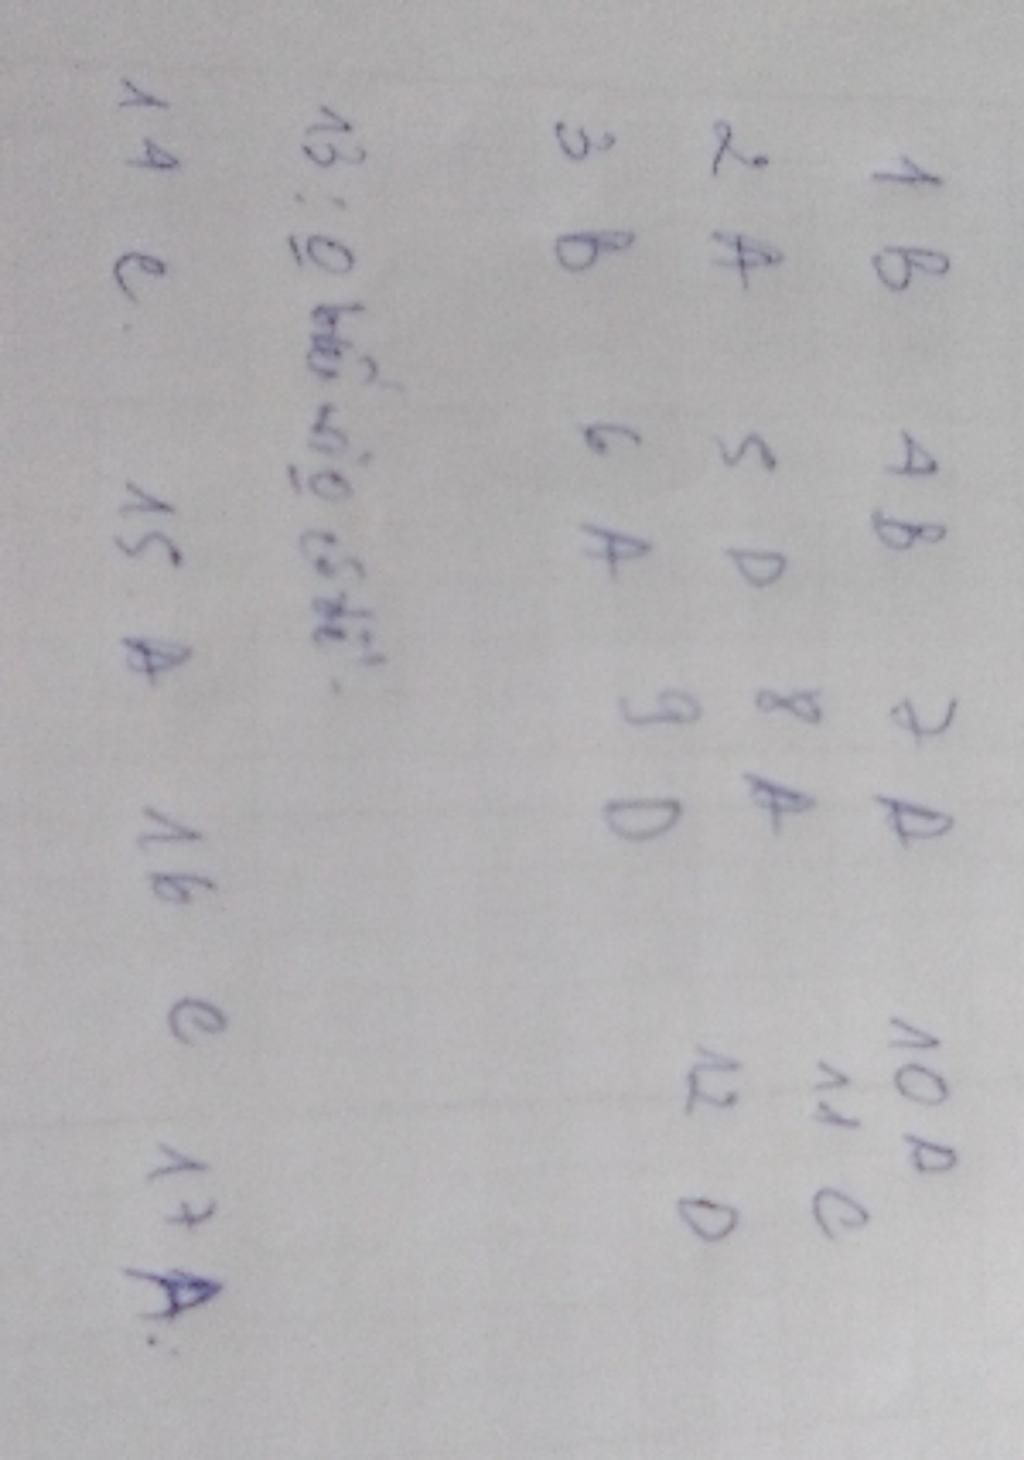 1 B 4 B 7 A 10 D
2 A 5 D 8 A 11 C
3 B 6 A 9 D 12 D
13: ở
14 C. 15 A 16 C 17 A.